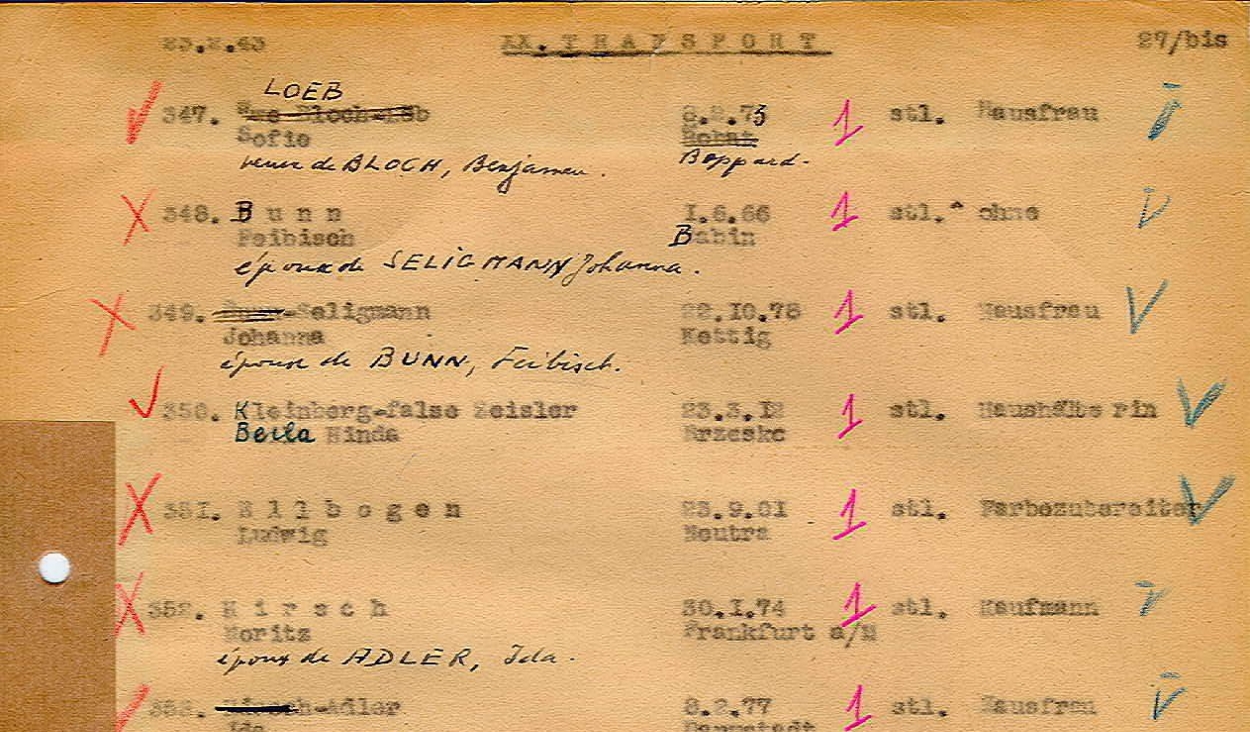 23.2.43 XX. TRANSPORT 27/bis
LOEB
347. Wwe Bloch-Löb 8.2.73 1 stl. Hausfrau
Sofie
veuve de BLOCH, Benjamin. Boppard.
348. Bunn 1.6.66 1 stl. ohne
Feibisch Babin
époux de SELIGMANN Johanna.
349. Bunn-Seligmann 22.10.78 1 stl. Hausfrau
Johanna Kettig
épouse de BUNN, Feibisch.
350. Kleinberg-false Zeisler 23.3.12 1 stl. Haushälterin
Beila Hinda Brzesko
351. Ellbogen 23.9.01 1 stl. Farbezubereiter
Ludwig Neutra
352. Hirsch 30.1.74 1 stl. Kaufmann
Moritz Frankfurt a/M
époux de ADLER, Ida.
353. Hirsch-Adler 8.2.77 1 stl. Hausfrau
Ida Darmstadt